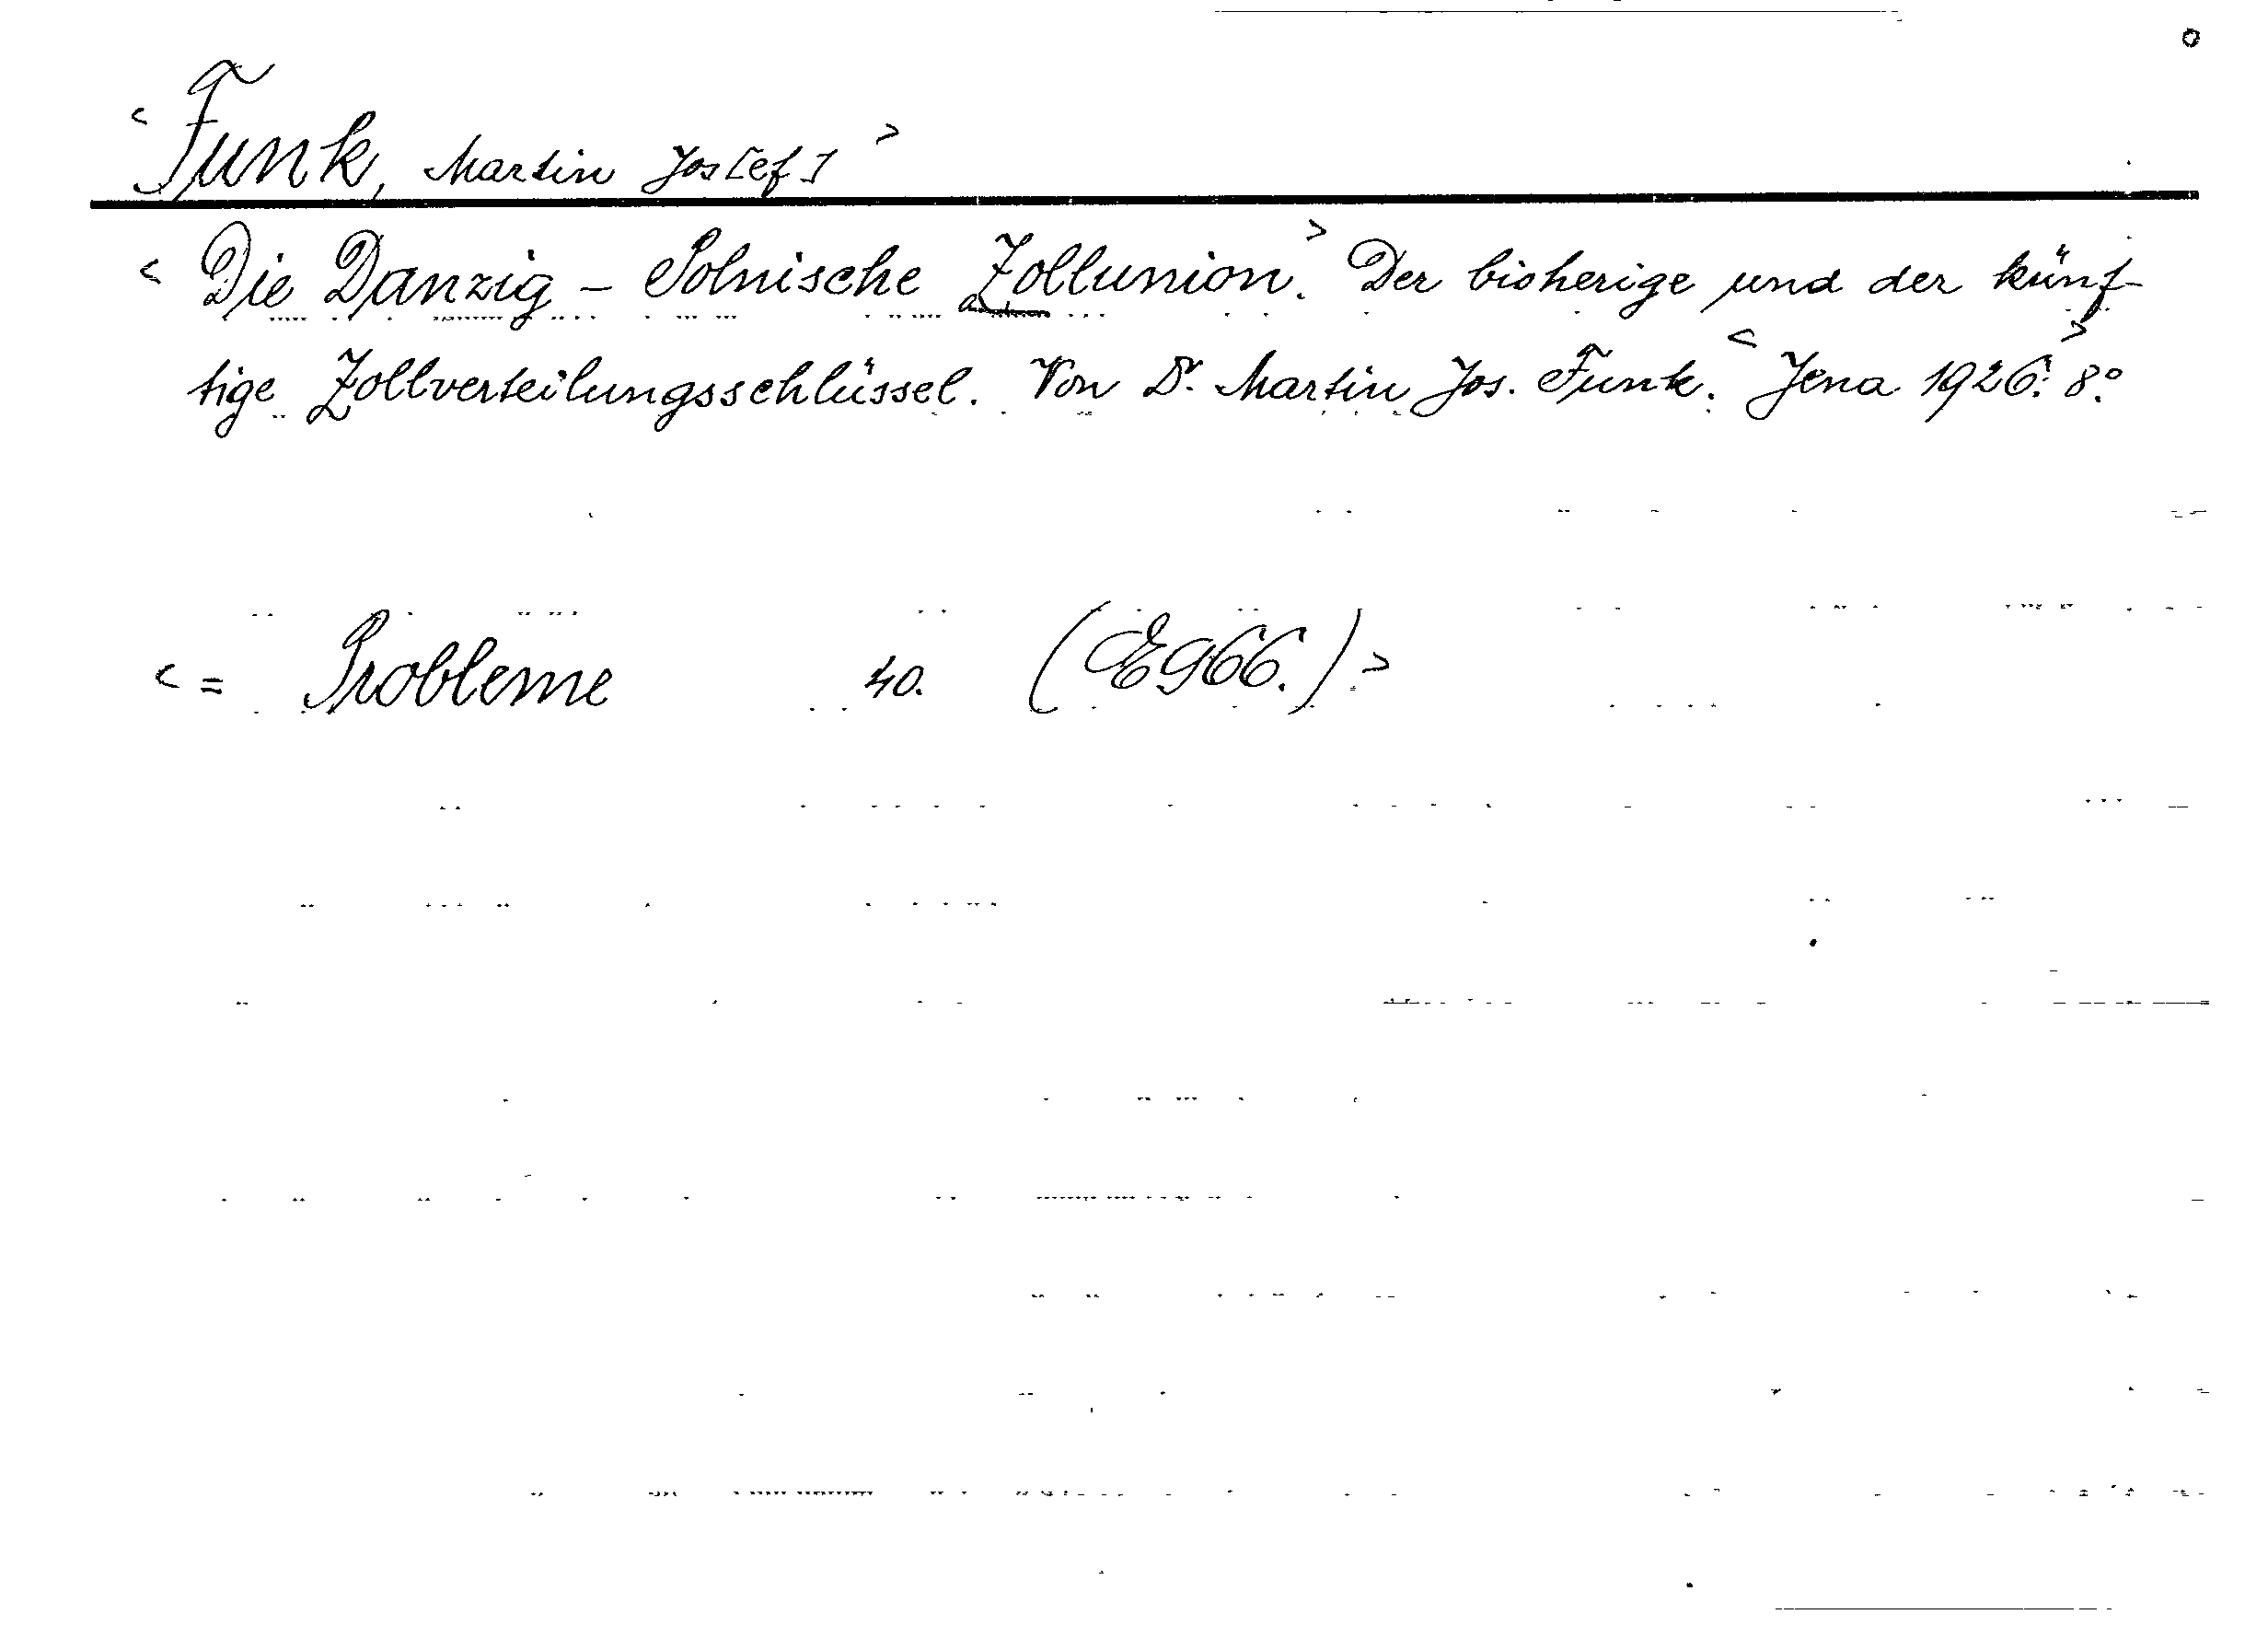 < Funk, Martin Jos[ef] >
< Die Danzig - Polnische Zollunion. > Der bisherige und der künf-
tige Zollverteilungsschlüssel. Von Dr. Martin Jos. Funk. < Jena 1926. > 8.°
< = Probleme 40. (Æ966.) >